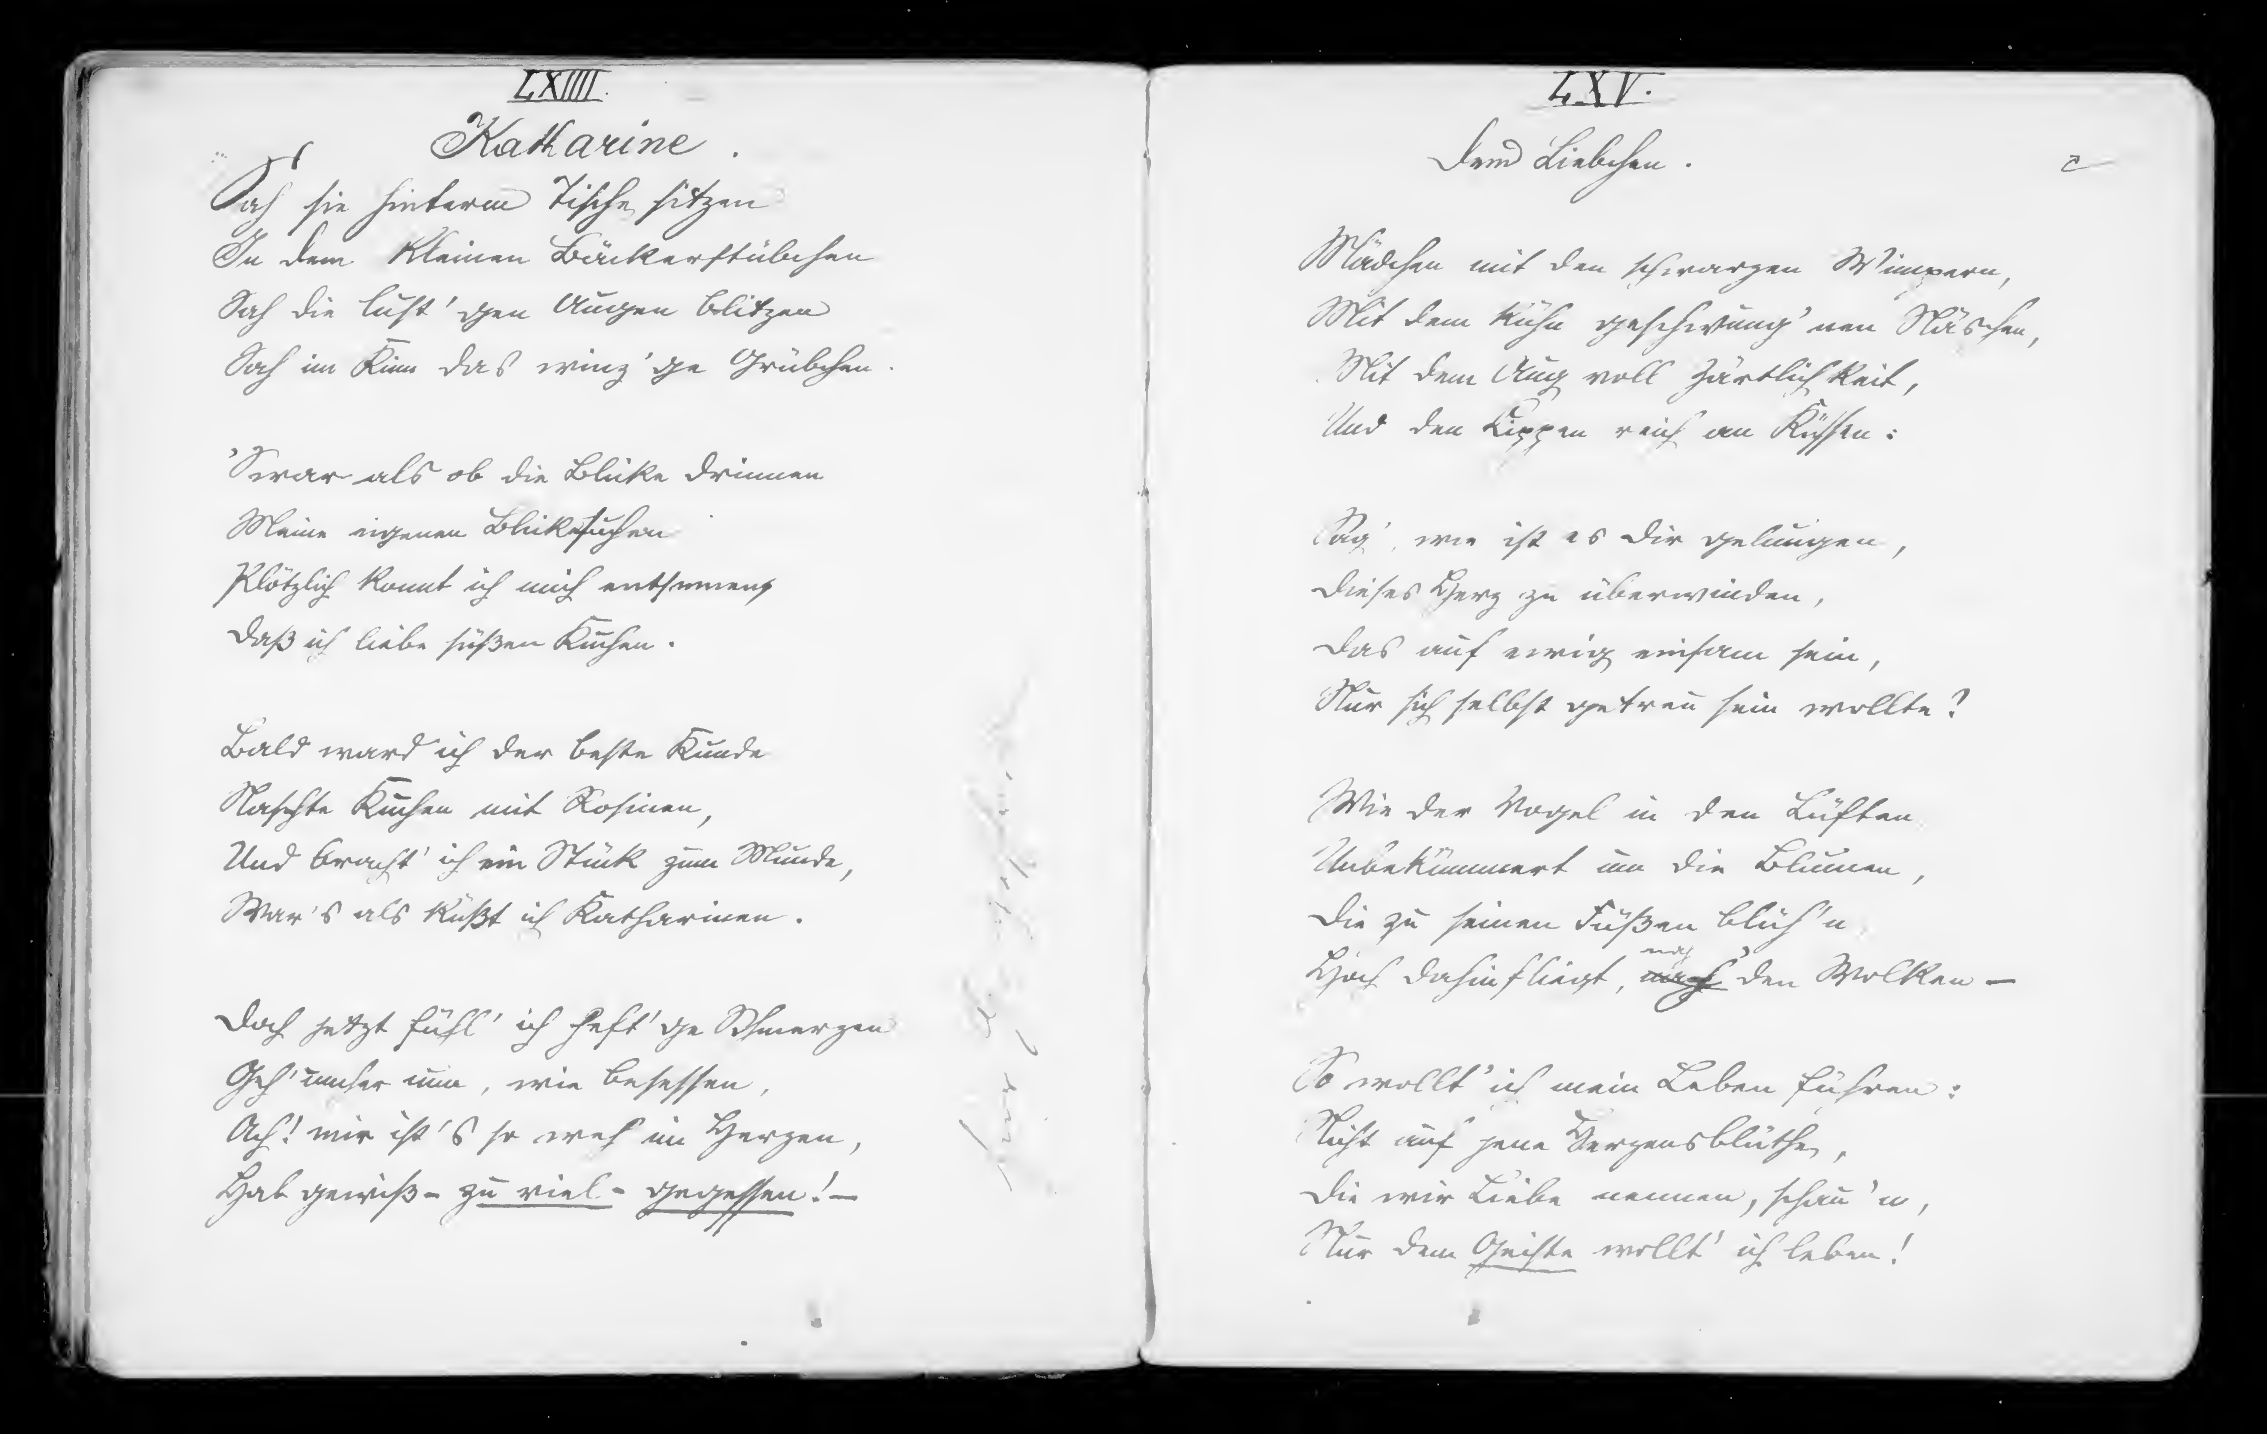 LXIIII.
Katharine.
Sah sie hinterm Tische sitzen
In dem kleinen Bäckerstübchen
Sah die lust'gen Augen blitzen
Sah im Kinn das winz'ge Grübchen.
'S war als ob die Blicke drinnen
Meine eigenen Blicke suchen
Plötzlich konnt ich mich entsinnen,
Daß ich liebe süßen Kuchen.
Bald ward ich der beste Kunde
Naschte Kuchen mit Rosinen,
Und bracht' ich ein Stück zum Munde,
War's als küßt ich Katharinen.
Doch jetzt fühl' ich heft'ge Schmerzen
Geh' umher nun, wie besessen,
Ach! mir ist's so weh im Herzen,
Hab gewiß - zu viel - gegessen! —
LXV.
Dem Liebchen.
Mädchen mit den schwarzen Wimpern,
Mit dem kühn geschwung'nen Näschen,
Mit dem Aug voll Zärtlichkeit,
Und den Lippen reich an Küssen:
Sag', wie ist es dir gelungen,
Dieses Herz zu überwinden,
Das auf ewig einsam sein,
Nur sich selbst getreu sein wollte?
Wie der Vogel in den Lüften
Unbekümmert um die Blumen,
Die zu seinen Füßen blüh'n
noch
Hoch dahinfliegt, nach den Wolken —
So wollt' ich mein Leben führen:
Nicht auf jene Herzensblüthe,
Die wir Liebe nennen, schau'n,
Nur dem Geiste wollt' ich leben!